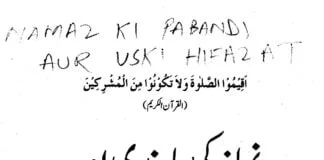 NAMAZ KI PABANDI
AUR USKI HIFAZAT
اَقِيْمُوا الصَّلٰوةَ وَلَا تَكُوْنُوْا مِنَ الْمُشْرِكِيْنَ
(القرآن الکریم)
نماز کی